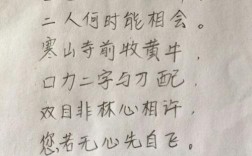 二人何时能相会。
寒山寺前收黄牛，
口力二字与刀配，
双目非林心相许，
您若无心先自飞。